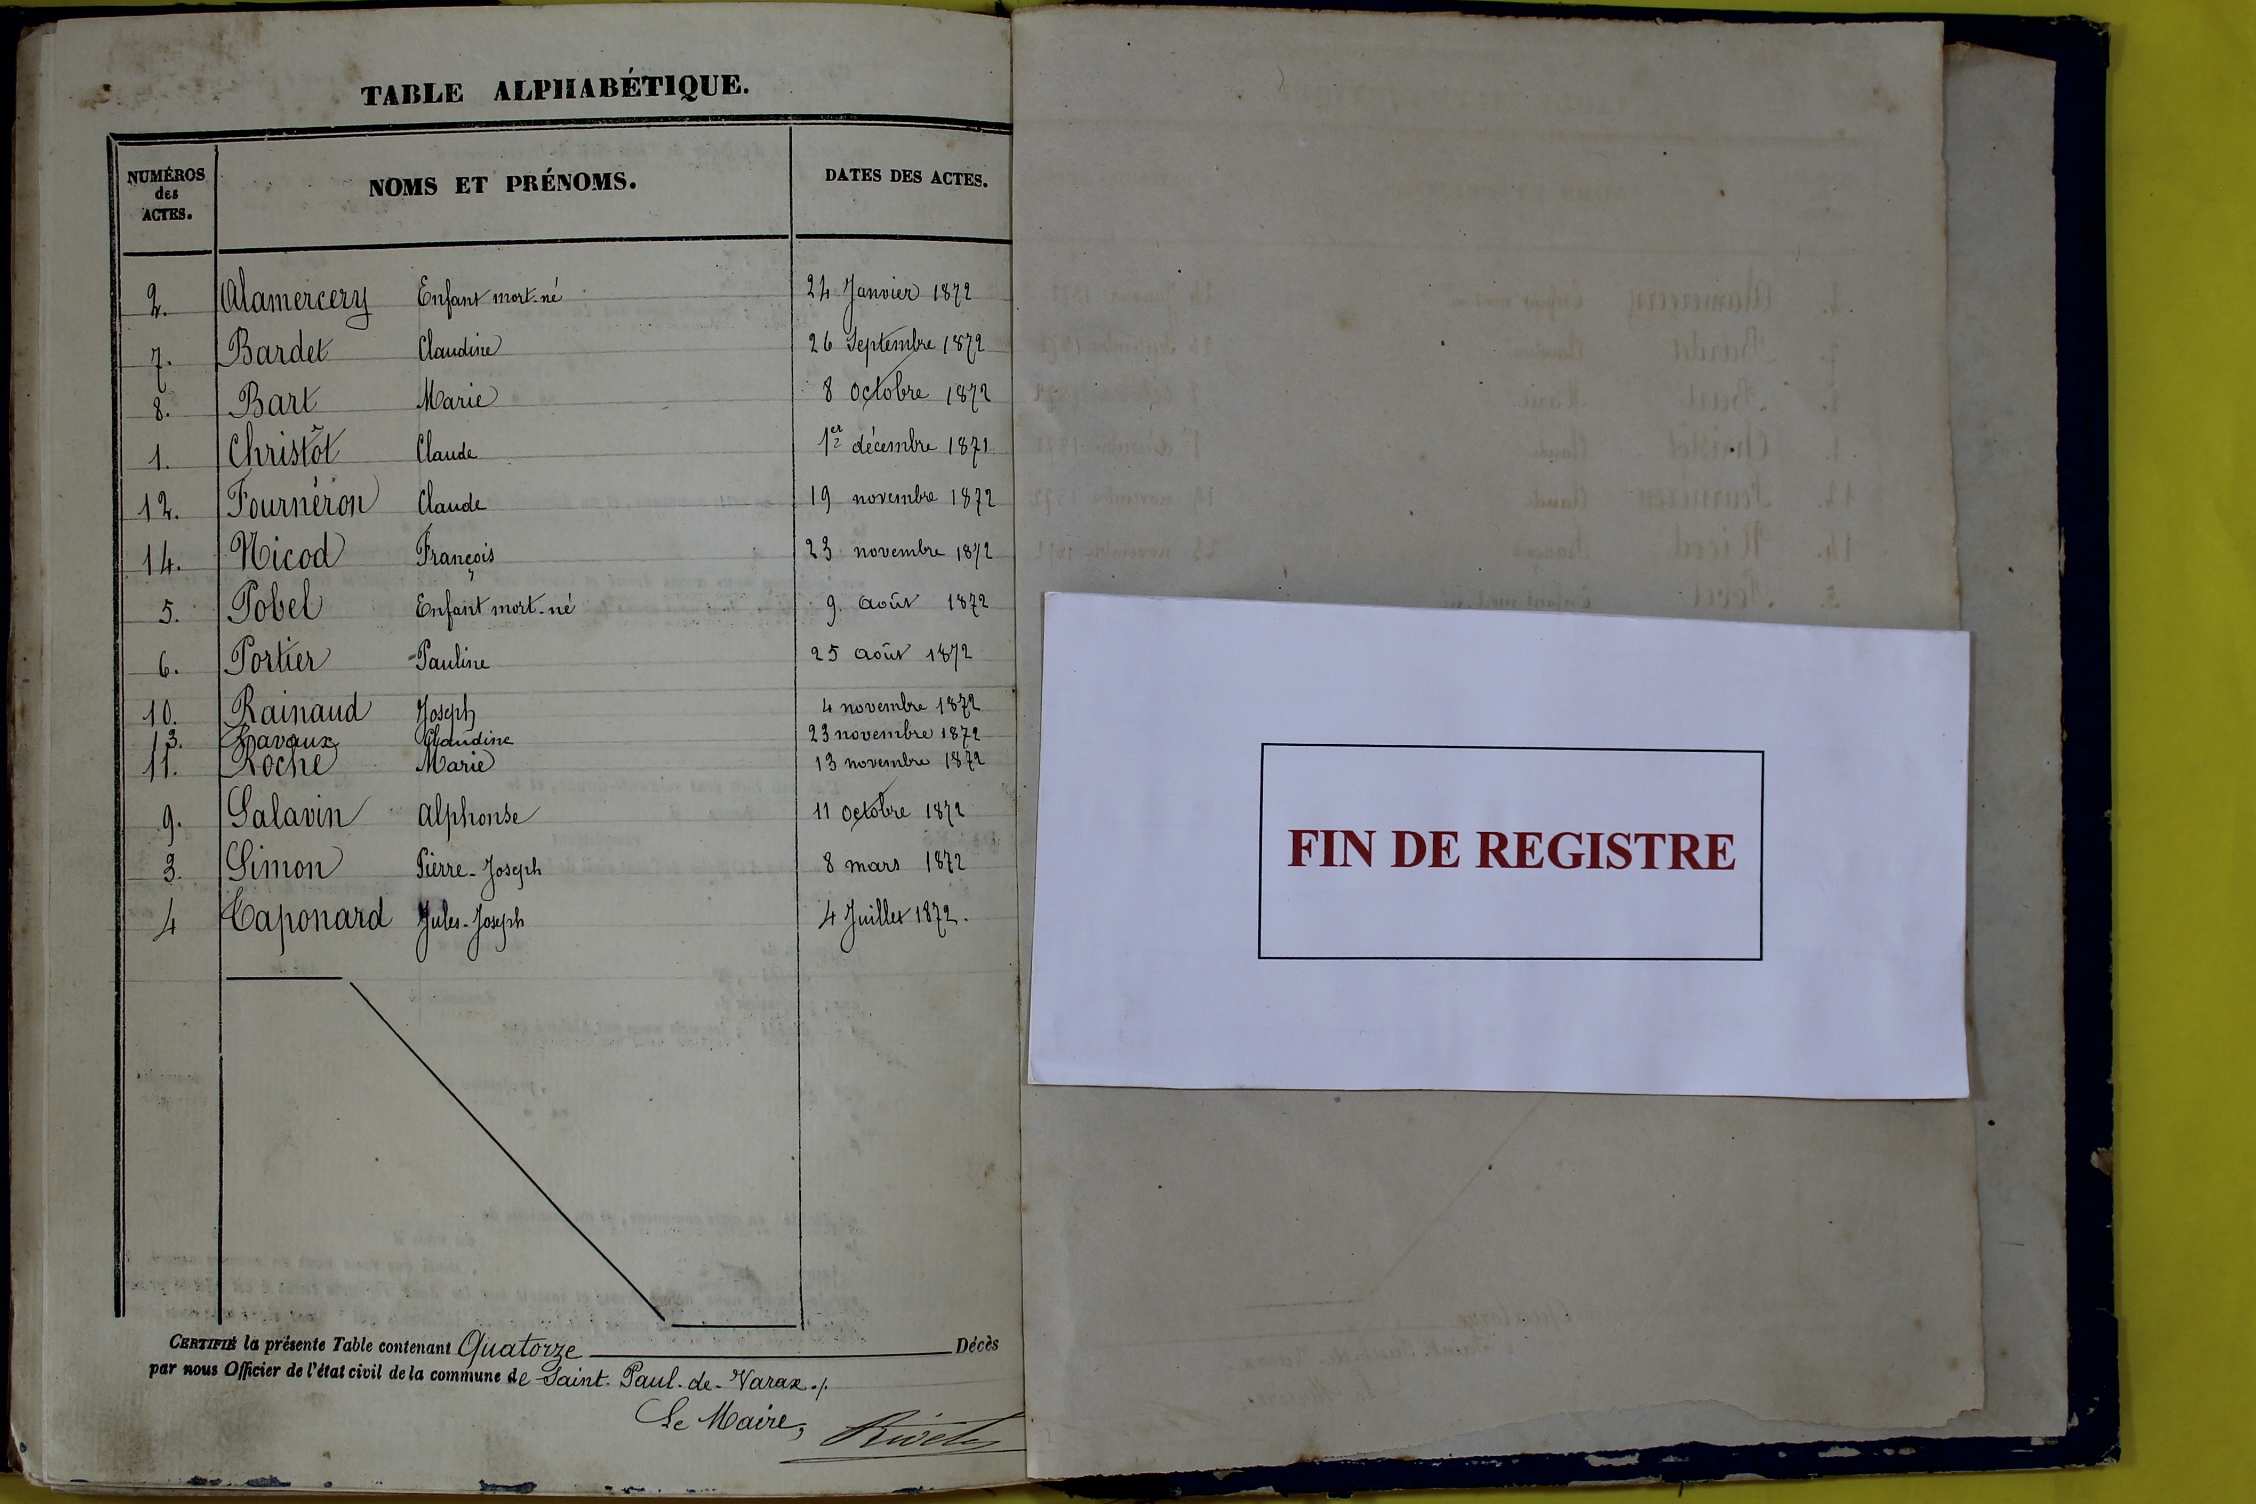 TABLE ALPHABÉTIQUE.
NUMÉROS des ACTES. NOMS ET PRÉNOMS. DATES DES ACTES.
2. Alamercery Enfant mort-né 24 Janvier 1872
7. Bardet Claudine 26 Septembre 1872
8. Bart Marie 8 Octobre 1872
1. Christôt Claude 1er décembre 1871
12. Fournéron Claude 19 novembre 1872
14. Nicod François 23 novembre 1872
5. Pobel Enfant mort-né 9. Août 1872
6. Portier Pauline 25 Août 1872
10. Rainaud Joseph 4 novembre 1872
13. Ravaux Claudine 23 novembre 1872
11. Roche Marie 13 novembre 1872
9. Salavin Alphonse 11 Octobre 1872
3. Simon Pierre-Joseph 8 mars 1872
4 Taponard Jules-Joseph 4 Juillet 1872.
CERTIFIÉ la présente Table contenant Quatorze Décès
par nous Officier de l'état civil de la commune de Saint-Paul-de-Varax./.
Le Maire,
FIN DE REGISTRE